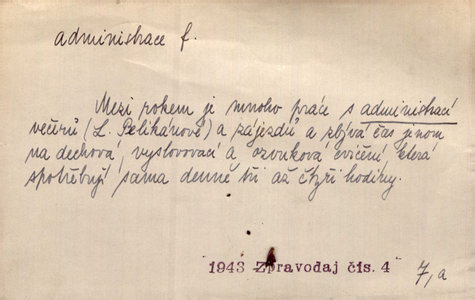 administrace f.
Mezi rokem je mnoho práce s administrací
večírků (L. Pelikánové) a zájezdů a zbývá čas jenom
na dechová, vyslovovací a ozvuková cvičení, která
spotřebují sama denně tři až čtyři hodiny.
1943 Zpravodaj čís. 4
7,a